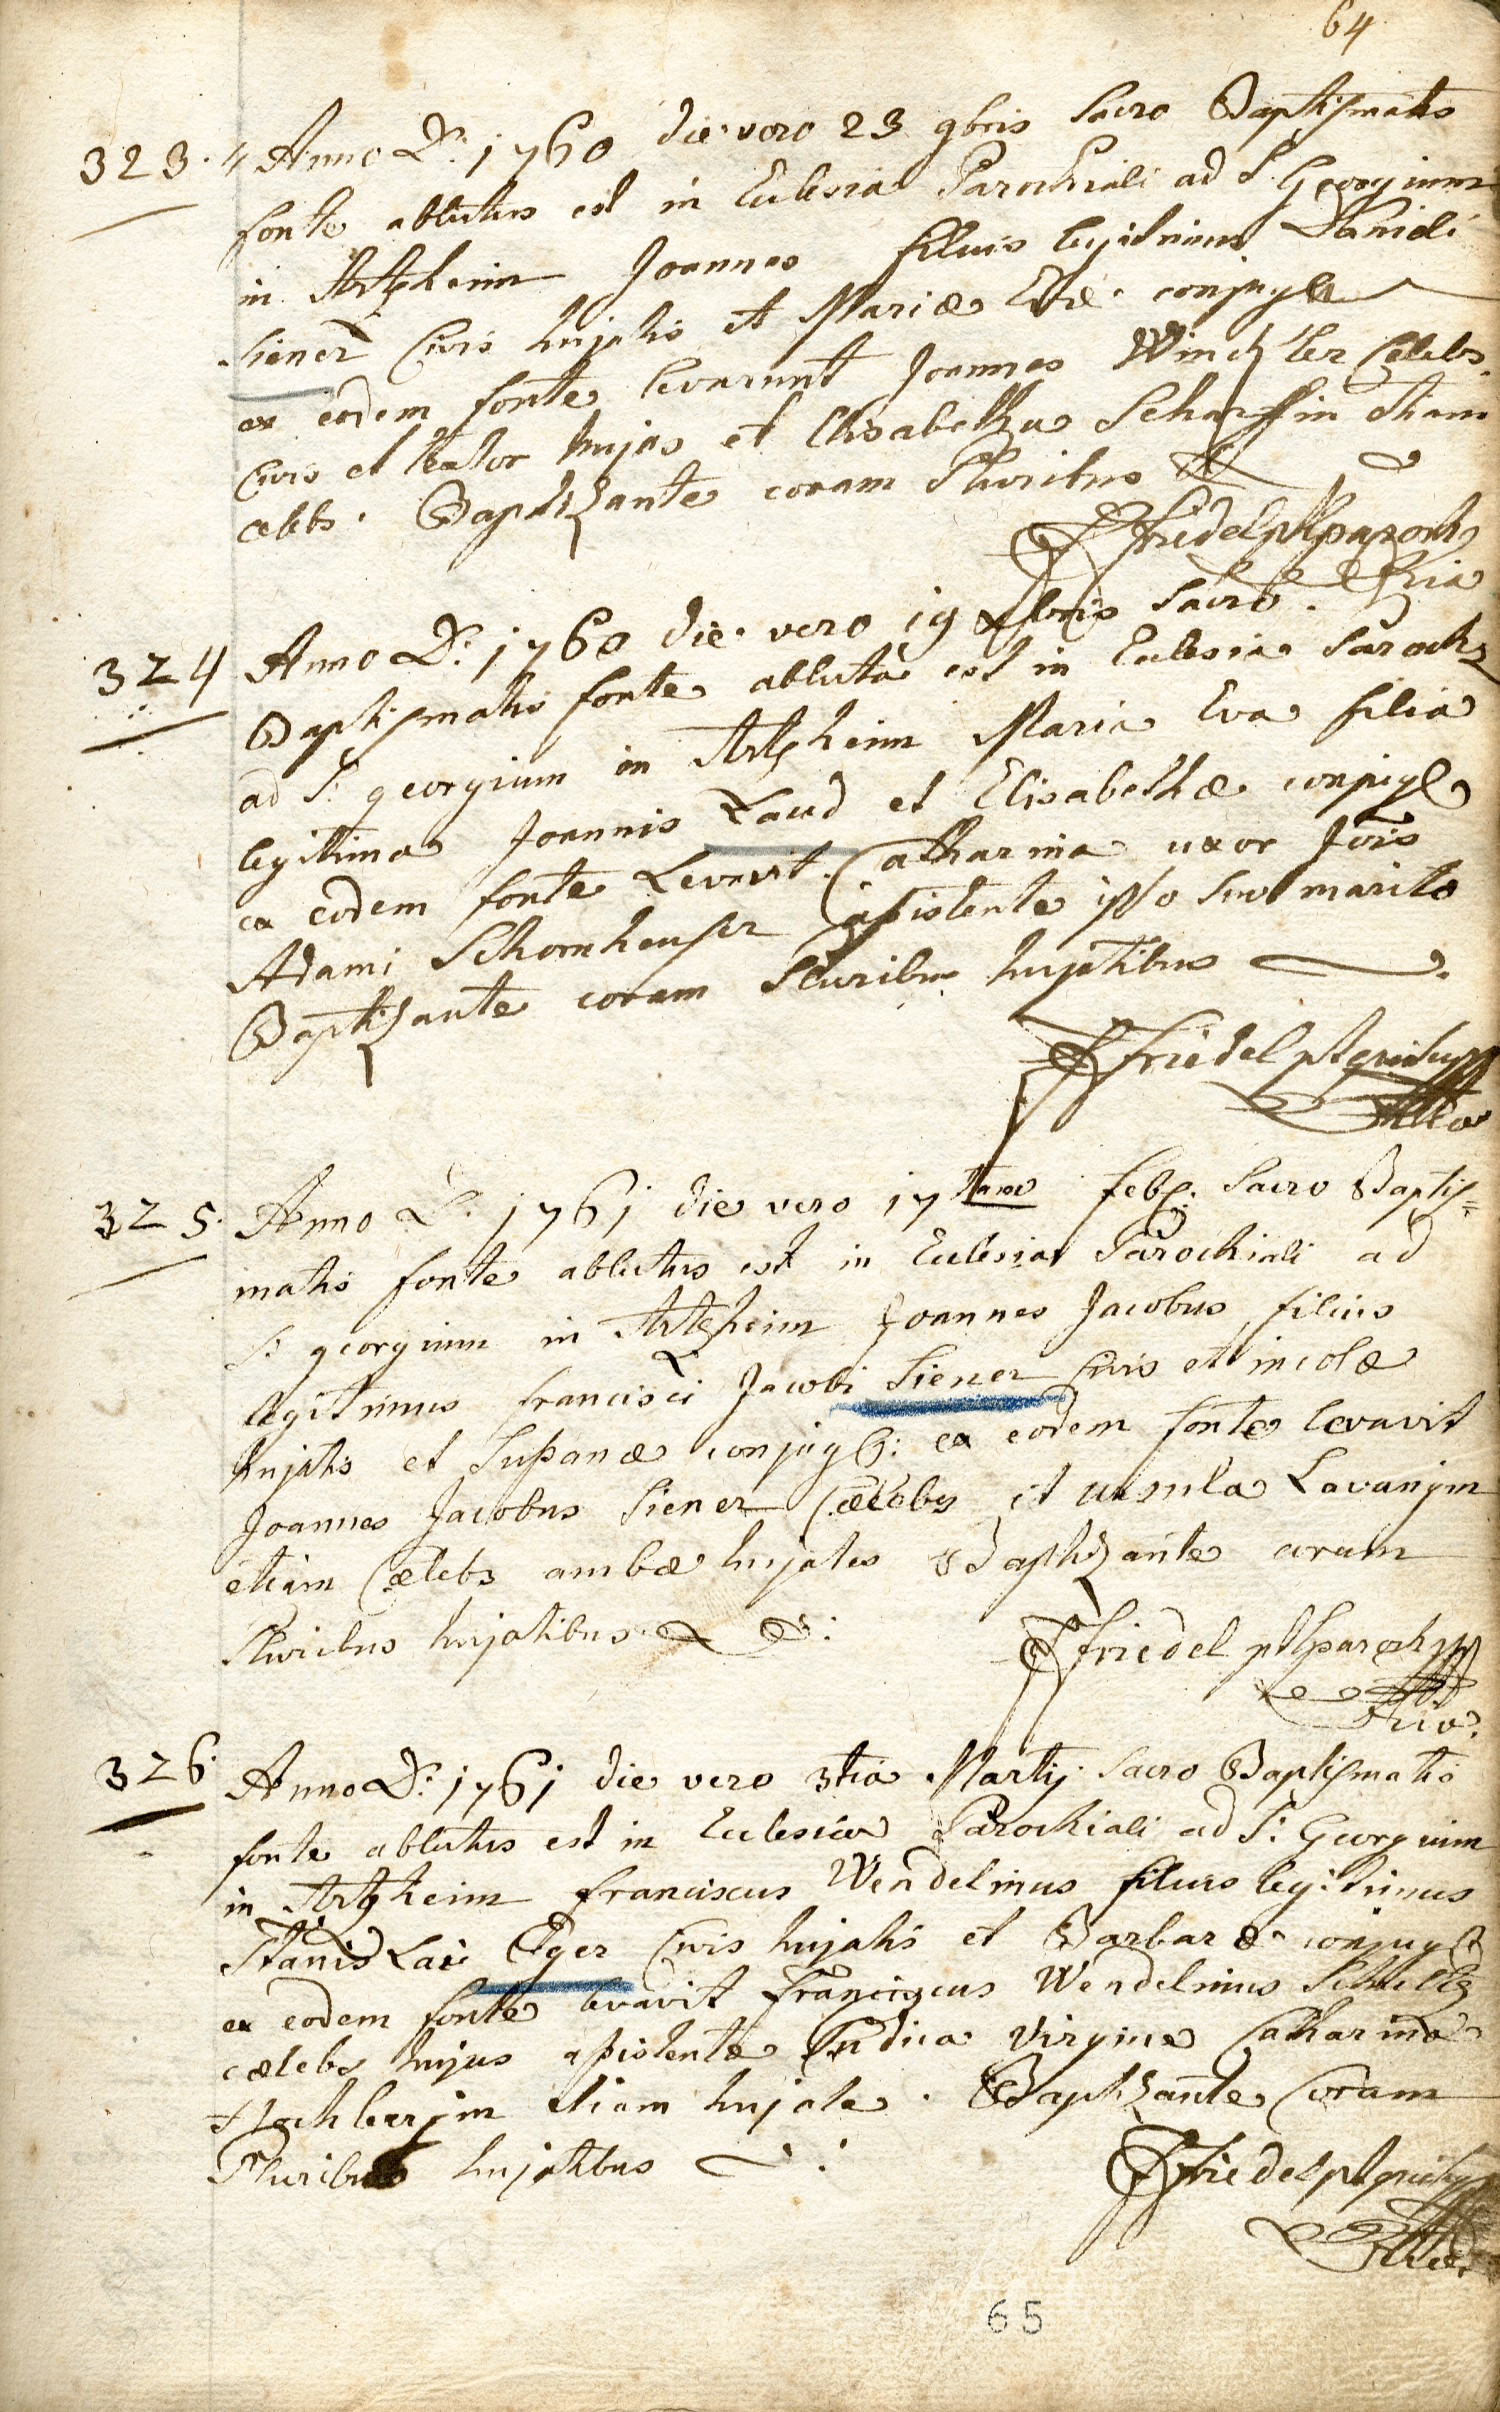 64
323. Anno D: 1760 die vero 23 9bris Sacro Baptismatis
fonte ablutus est in Eclesia Parochiali ad S. Georgium
in Artzheim Joannes filius legitimus Danieli
Siener Civis hujatis et Mariæ Evæ conjugū
ex eodem fonte levarunt Joannes Winckler Celebs
Civis et hujus et Elisabetha Scharffin etiam
celebs. Baptizante coram Pluribus
Friedel pt parock
324 Anno D: 1760 die vero 19 Xbris Sacro
Baptismatis fonte abluta est in Eclesia Paroch:
ad S: georgium in Artzheim Maria Eva filia
legitima Joannis Laud et Elisabethæ conjugū
ex eodem fonte Levavit Catharina uxor Jōis
Adami Schornheuser assistente ipso suo marito
Baptizante coram Pluribus hujatibus
Friedel pt
325. Anno D: 1761 die vero 17tamo feb: Sacro Baptis=
matis fonte ablutus est in Eclesia Parochiali ad
S: georgium in Artzheim Joannes Jacobus filius
legitimus francisci Jacobi Siener Civis et incolæ
hujatis et Susanæ conjug: ex eodem fonte levavit
Joannes Jacobus Siener Cælebs et ursula Lavanjin
etiam Cælebs ambæ hujates Baptizante coram
Pluribus hujatibus
Friedel pt parochus
326. Anno D: 1761 die vero 3tia Martij Sacro Baptismatis
fonte ablutus est in Eclesia Parochiali ad S: Georgium
in Artzheim franciscus Wendelinus filius legitimus
StanisLai Eger Civis hujatis et Barbaræ conjugū
ex eodem fonte levavit franciscus Wendelinus Schultz
cælebs hujus assistente pudica Virgine Catharina
etiam hujate. Baptizante Coram
Pluribus hujatibus
Friedel pt
65